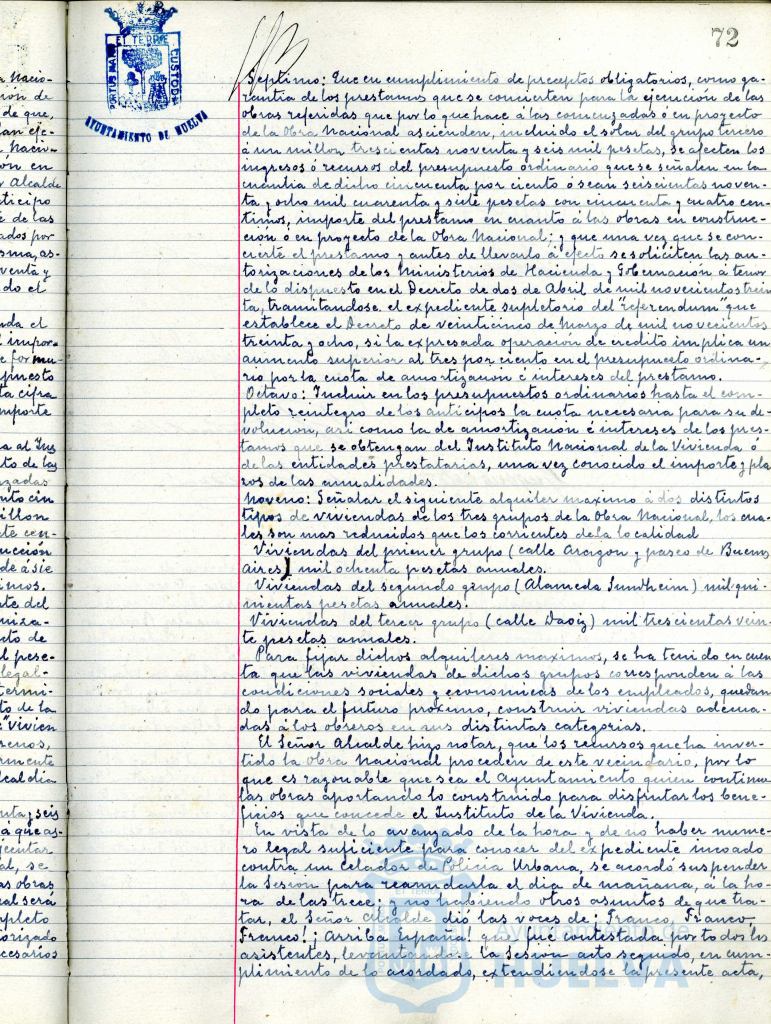 72
PORTUS MARIS ET TERRAE CUSTODIA
AYUNTAMIENTO DE HUELVA
Septimo: Que en cumplimiento de preceptos obligatorios, como ga-
rantia de los prestamos que se concierten para la ejecución de las
obras referidas que por lo que hace á las comenzadas ó en proyecto
de la Obra Nacional ascienden, incluido el solar del grupo tercero
á un millon trescientas noventa y seis mil pesetas, se afecten los
ingresos ó recursos del presupuesto ordinario que se señalen en la
cuantia de dicho cincuenta por ciento ó sean seiscientas noven-
ta y ocho mil cuarenta y siete pesetas con cincuenta y cuatro cen-
timos, importe del prestamo en cuanto á las obras en construc-
ción ó en proyecto de la Obra Nacional; y que una vez que se con-
cierte el prestamo y antes de llevarlo á efecto se soliciten las au-
torizaciones de los Ministerios de Hacienda y Gobernación á tenor
de lo dispuesto en el Decreto de dos de Abril de mil novecientos trein
ta, tramitandose, el expediente supletorio del "referendum" que
establece el Decreto de veinticinco de Marzo de mil novecientos
treinta y ocho, si la expresada operación de credito implica un
aumento superior al tres por ciento en el presupuesto ordina-
rio por la cuota de amortizacion é intereses del prestamo.
Octavo: Incluir en los presupuestos ordinarios hasta el com-
pleto reintegro de los anticipos la cuota necesaria para su de-
volucion, asi como la de amortización é intereses de los pres-
tamos que se obtengan del Instituto Nacional de la Vivienda ó
de las entidades prestatarias, una vez conocido el importe y pla
zos de las anualidades.
Noveno: Señalar el siguiente alquiler maximo á dos distintos
tipos de viviendas de los tres grupos de la Obra Nacional, los cua-
les son mas reducidos que los corrientes de la localidad
Viviendas del primer grupo (calle Aragon y paseo de Buenos
Aires) mil ochenta pesetas anuales.
Viviendas del segundo grupo (Alameda Sundheim) mil qui-
nientas pesetas anuales.
Viviendas del tercer grupo (calle Daoiz) mil trescientas vein-
te pesetas anuales.
Para fijar dichos alquileres maximos, se ha tenido en cuen
ta que las viviendas de dichos grupos corresponden á las
condiciones sociales y economicas de los empleados, quedan
do para el futuro próximo, construir viviendas adecua-
das á los obreros en sus distintas categorias.
El Señor Alcalde hizo notar, que los recursos que ha inver-
tido la obra Nacional proceden de este vecindario, por lo
que es razonable que sea el Ayuntamiento quien continue
las obras aportando lo construido para disfrutar los bene-
ficios que concede el Instituto de la Vivienda.
En vista de lo avanzado de la hora y de no haber nume-
ro legal suficiente para conocer del expediente incoado
contra un celador de Policia Urbana, se acordó suspender
la Sesión para reanudarla el dia de mañana, á la ho-
ra de las trece; y no habiendo otros asuntos de que tra-
tar, el Señor Alcalde dió las voces de ¡Franco, Franco,
Franco! ¡Arriba España! que fue contestada por todos los
asistentes, levantando la Sesion acto seguido, en cum-
plimiento de lo acordado, extendiendose la presente acta,
Ayuntamiento de
HUELVA